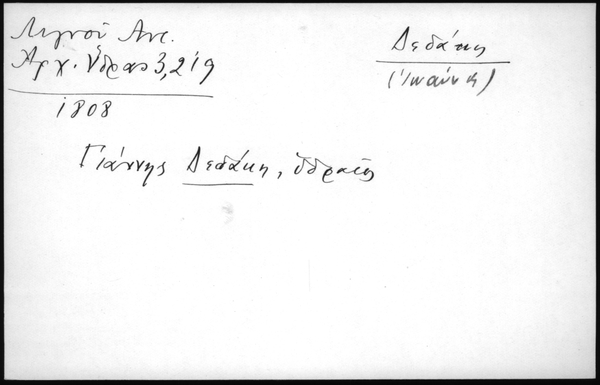 Λιγνού Αντ.
Αρχ. Ύδρας 3, 219
1808
Δεδάκης
(Ιωάννης)
Γιάννης Δεδάκη, ὑδραῖος